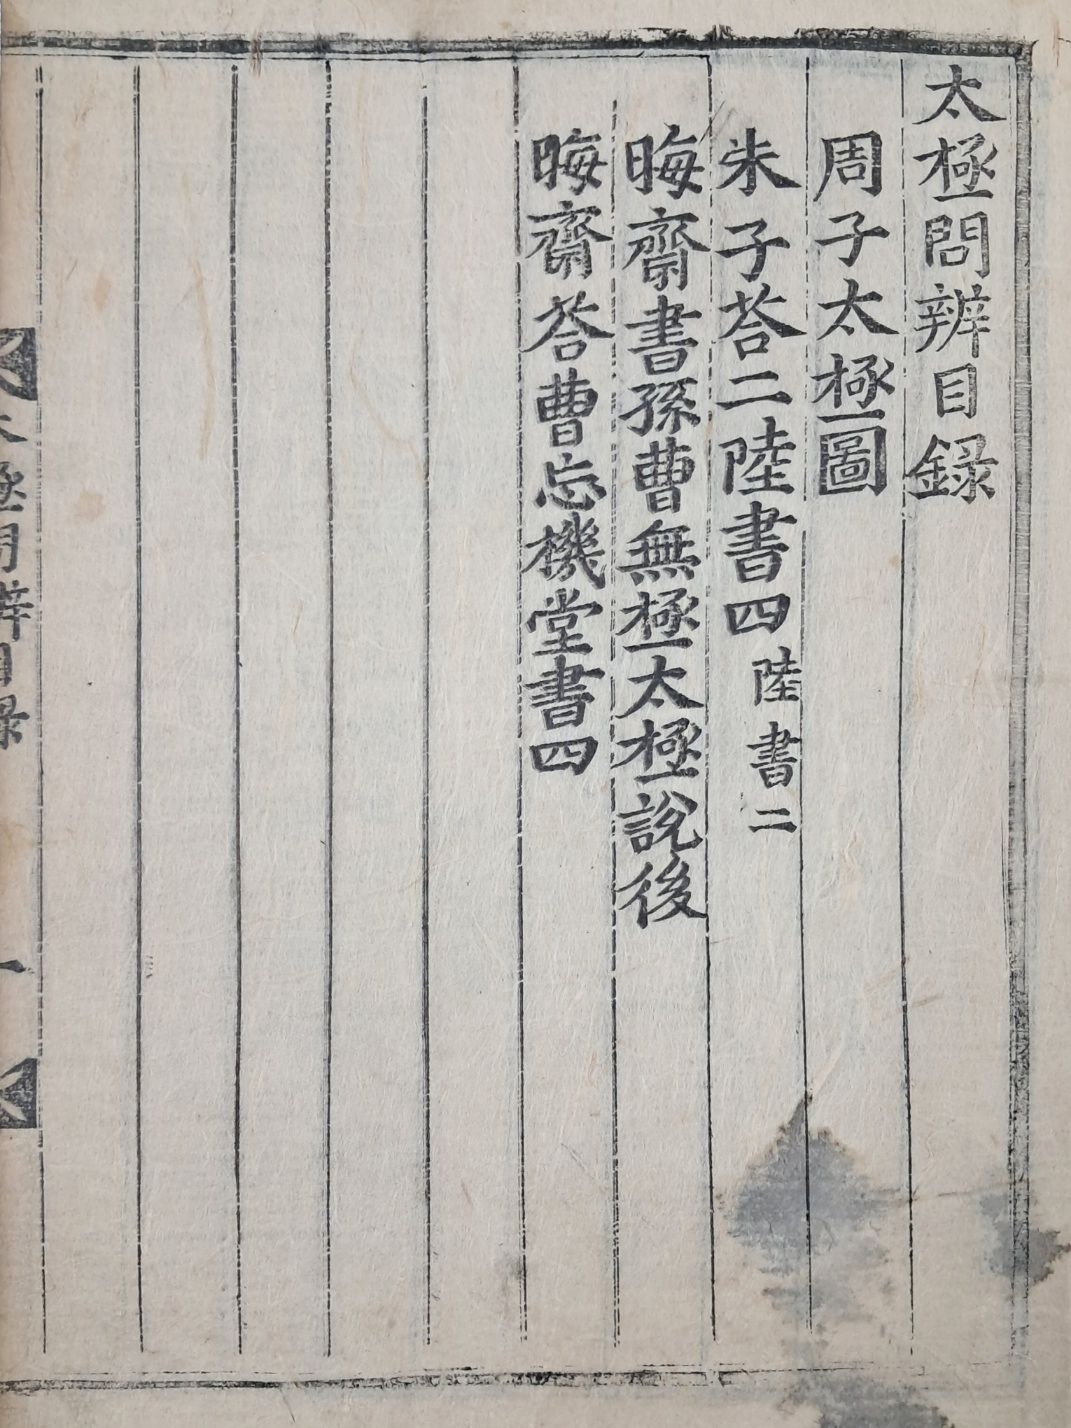 太極問辨目録
周子太極圖
朱子荅二陸書四 陸書二
晦齋書孫曹無極太極說後
晦齋荅曹忘機堂書四
太極問辨目録 一